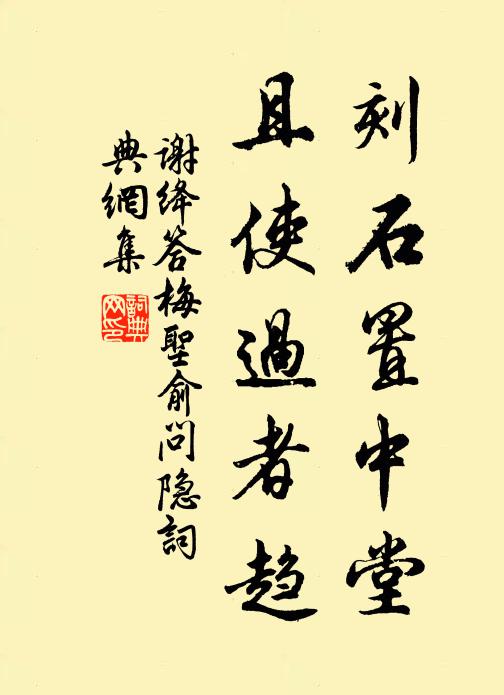 刻石置中堂
且使過者趋
谢绛答梅聖俞问隐詞
典網集
詞典
网印